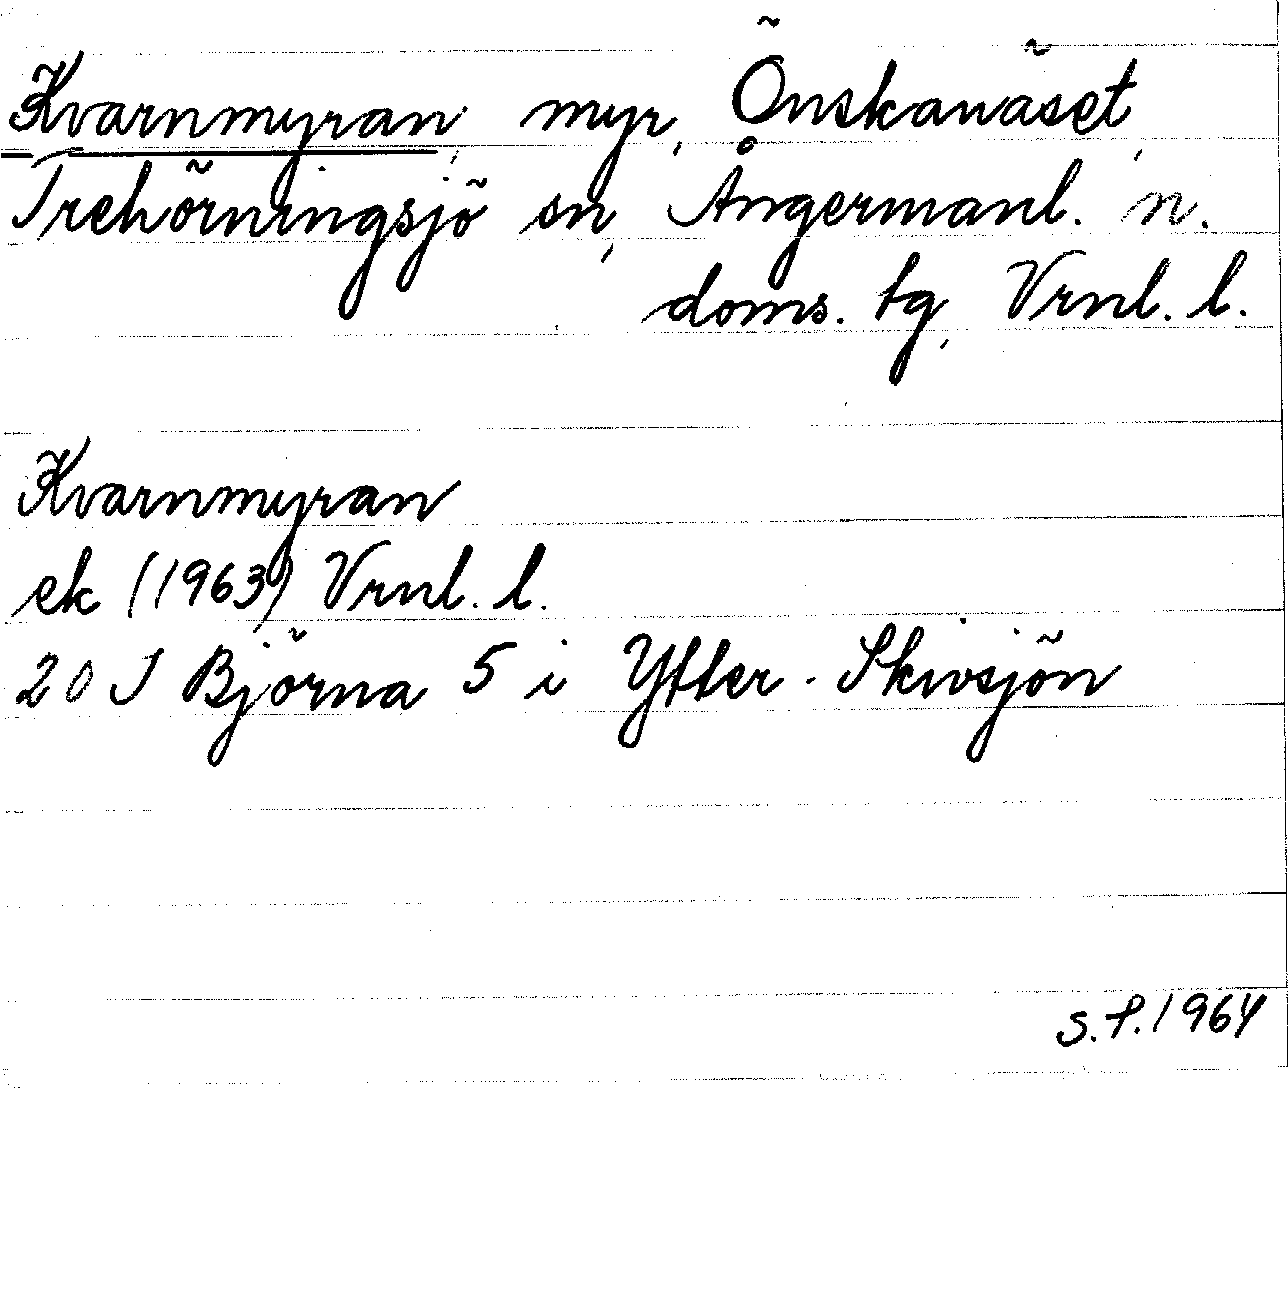 Kvarnmyran, myr, Önskanäset,
Trehörningsjö sn, Ångermanl. n.
doms. tg, Vrnl. l.
Kvarnmyran
ek (1963) Vrnl. l.
20 J Björna 5 i Ytter-Skivsjön
S.P. 1964